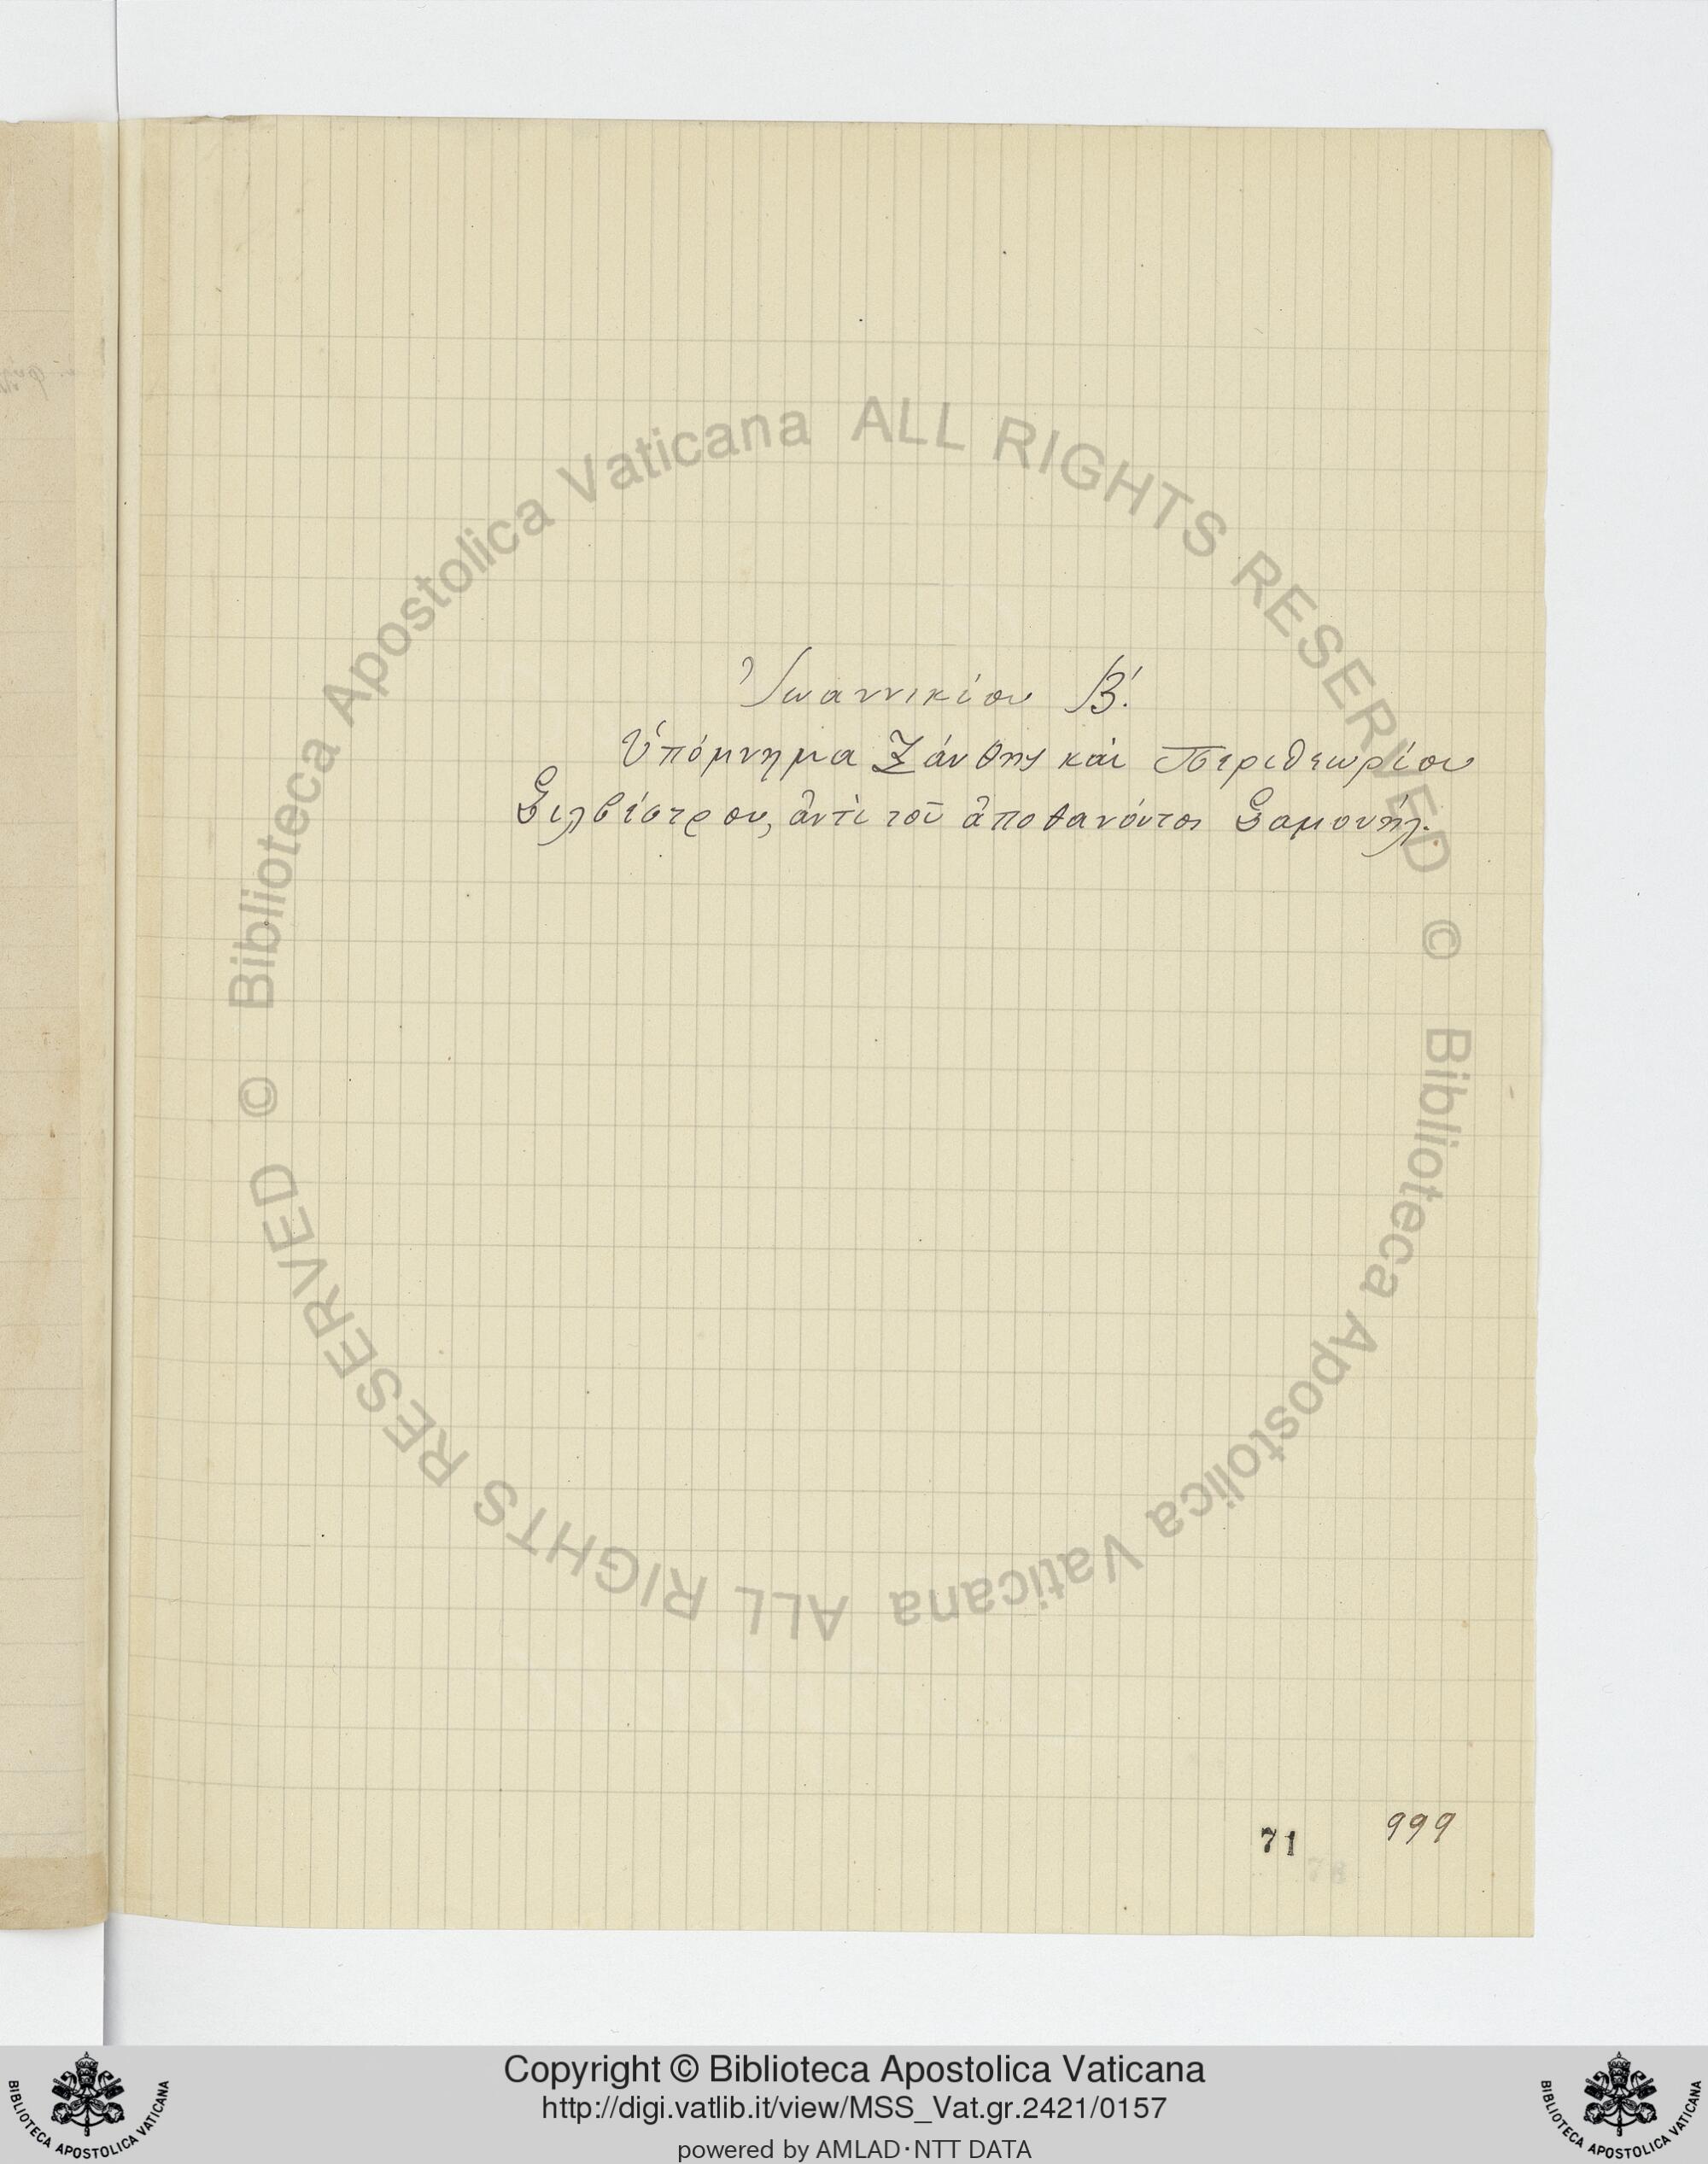 Ἰωαννικίου Β΄.
Ὑπόμνημα Ξάνθης καὶ Περιθεωρίου
Σιλβέστρου, ἀντὶ τοῦ ἀποθανόντος Σαμουήλ.
71 999
© Biblioteca Apostolica Vaticana ALL RIGHTS RESERVED © Biblioteca Apostolica Vaticana ALL RIGHTS RESERVED
Copyright © Biblioteca Apostolica Vaticana
http://digi.vatlib.it/view/MSS_Vat.gr.2421/0157
powered by AMLAD·NTT DATA
BIBLIOTECA APOSTOLICA VATICANA
BIBLIOTECA APOSTOLICA VATICANA